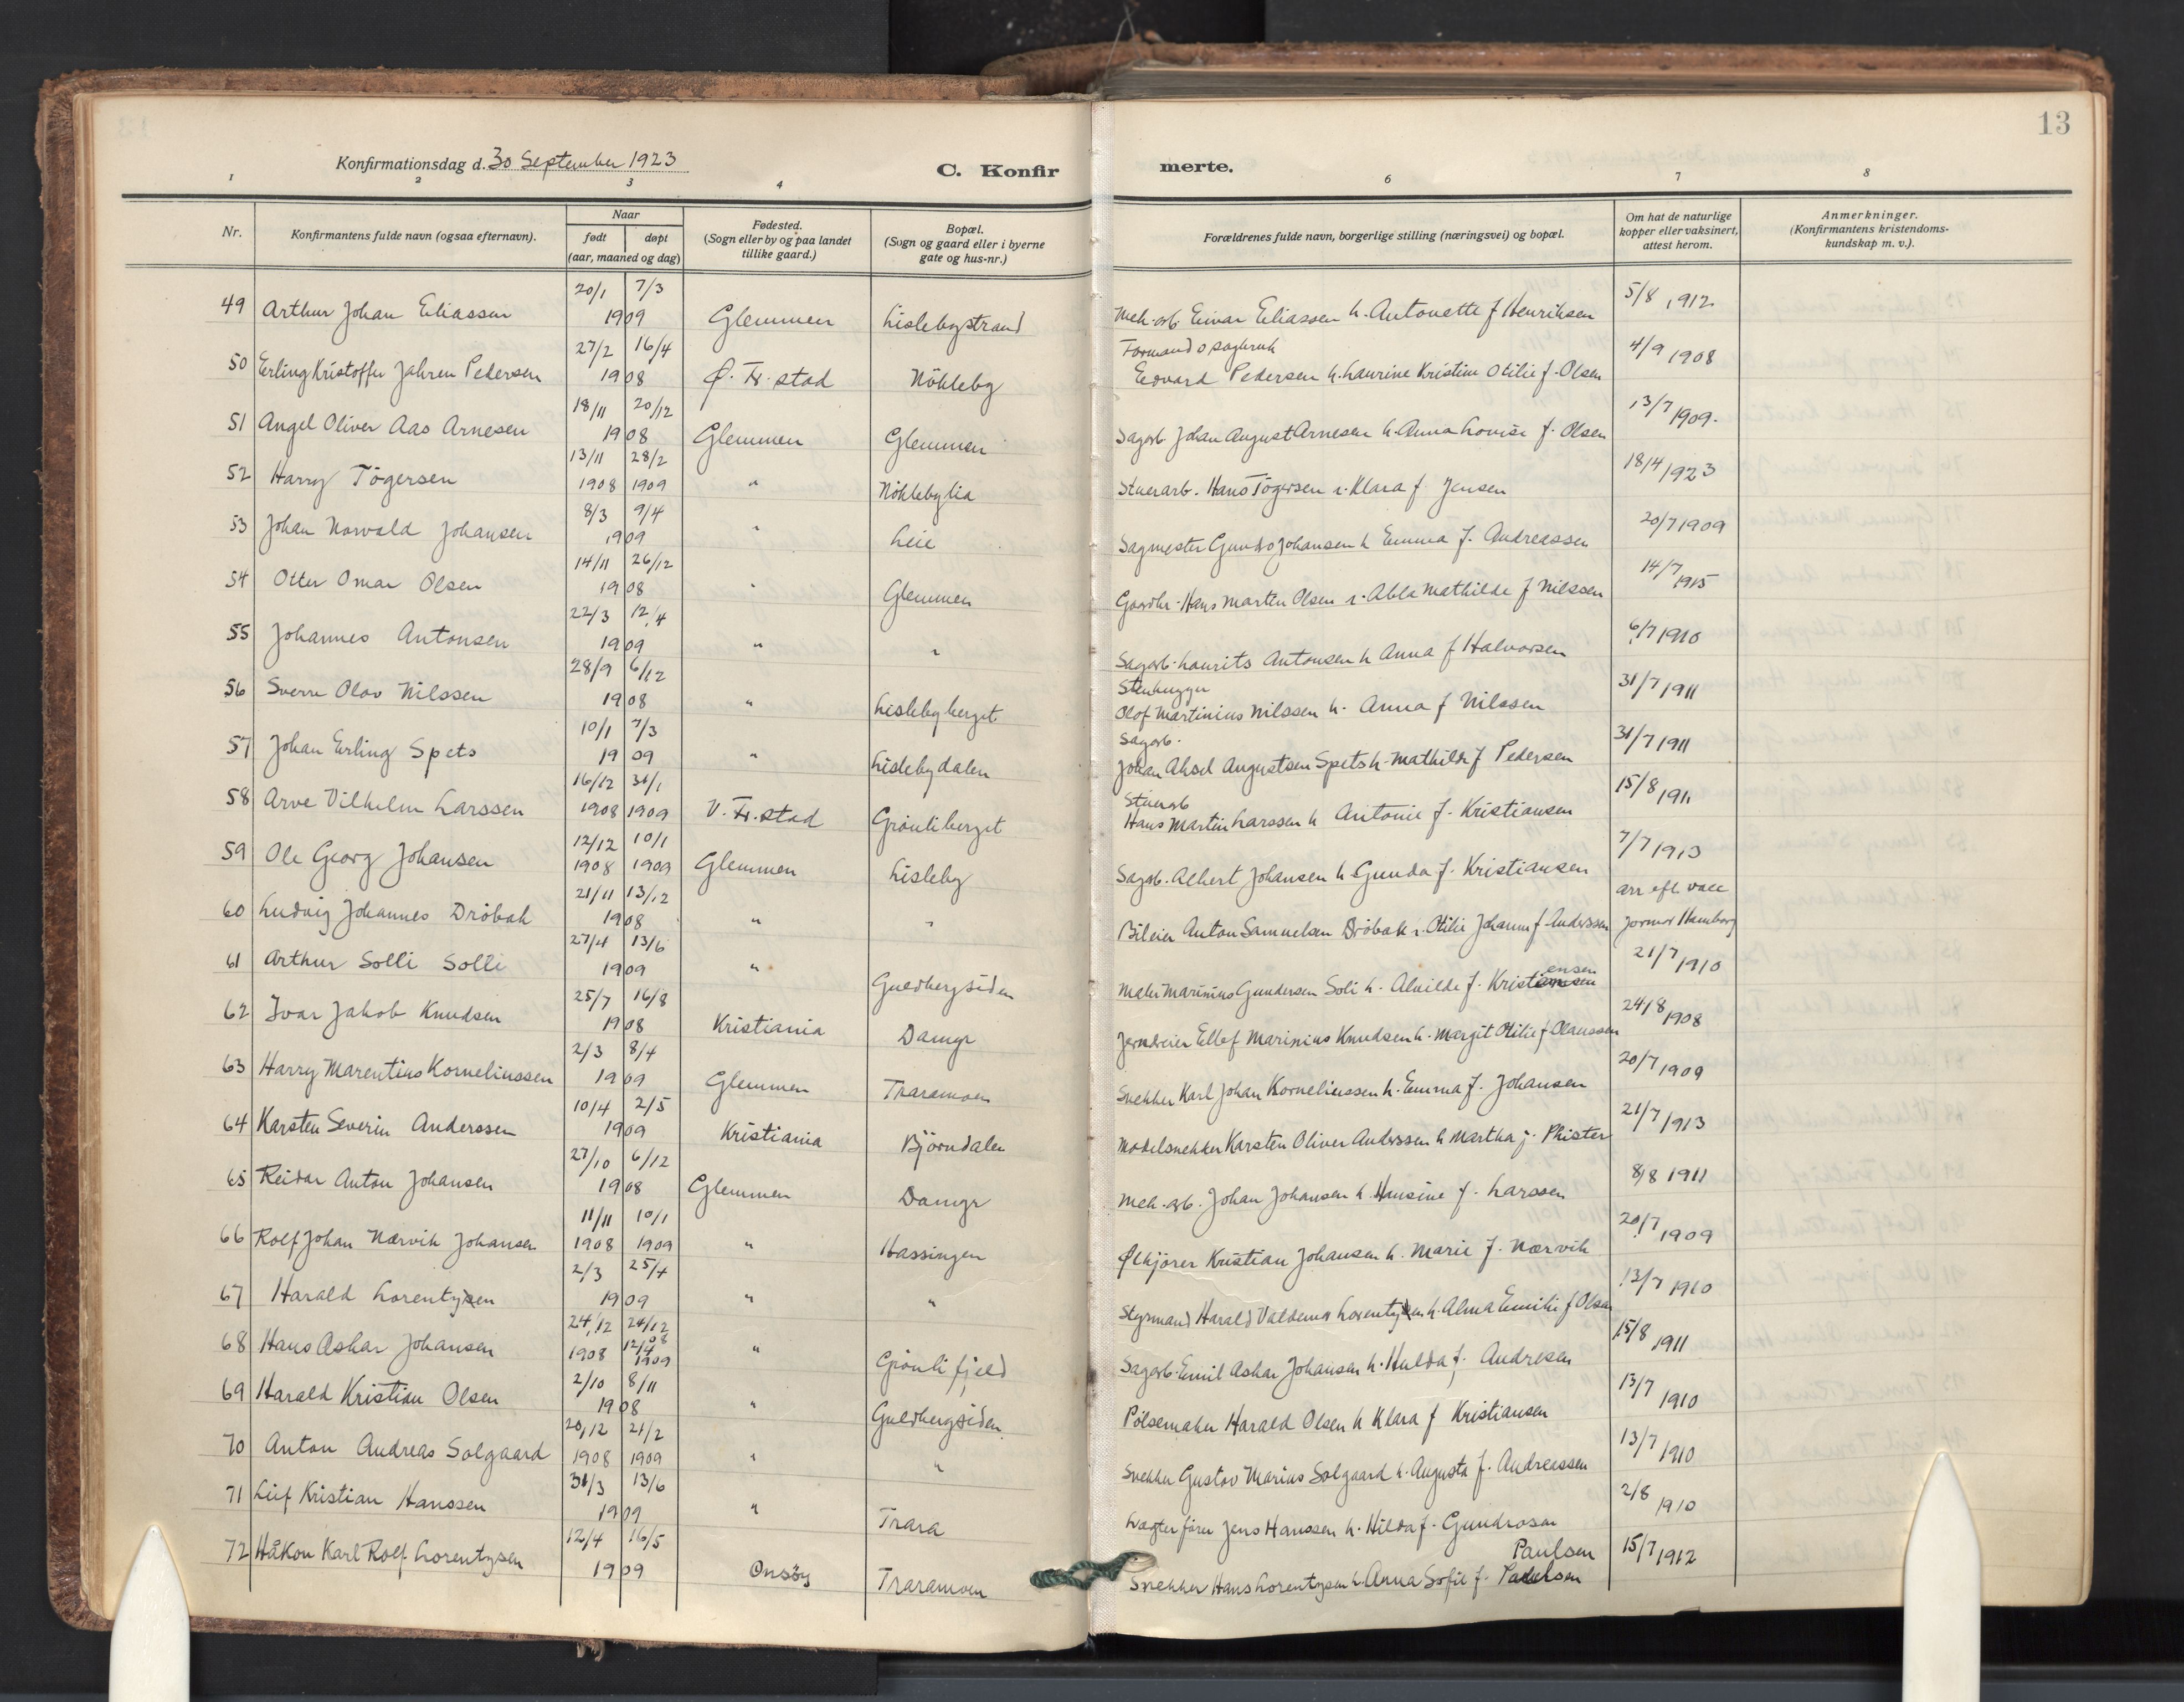 13
Konfirmationsdag d. 30 September 1923
C. Konfir merte.
1 2 3 4 6 7 8
Nr. Konfirmantens fulde navn (ogsaa efternavn). Naar født døpt (aar, maaned og dag) Fødested. (Sogn eller by og paa landet tillike gaard.) Bopæl. (Sogn og gaard eller i byerne gate og hus-nr.) Forældrenes fulde navn, borgerlige stilling (næringsvei) og bopæl. Om hat de naturlige kopper eller vaksinert, attest herom. Anmerkninger. (Konfirmantens kristendoms-kundskap m. v.).
49 Arthur Johan Eliassen 20/1 7/3 1909 Glemmen Lislebystrand Mek. arb. Einar Eliassen h. Antonette f Henriksen 5/8 1912
50 Erling Kristoffer Jahren Pedersen 27/2 16/4 1908 Ø. Fr. stad Nökleby Formand o sagbruk Edvard Pedersen h. Laurine Kristine Otilie f. Olsen 4/9 1908
51 Angel Oliver Aas Arnesen 18/11 20/12 1908 Glemmen Glemmen Sagarb. Johan August Arnesen h. Anna Lovise f. Olsen 13/7 1909.
52 Harry Tögersen 13/11 28/2 1908 1909 " Nöklebylia Stuerarb. Hans Tögersen h. Klara f. Jensen 18/4 1923
53 Johan Norvald Johansen 8/3 9/4 1909 " Leie Sagmester Johansen h Emma f. Andreassen 20/7 1909
54 Otter Omar Olsen 14/11 26/12 1908 " Glemmen Gaardbr. Hans Marten Olsen h. Abla Mathilde f Nilssen 14/7 1915
55 Johannes Antonsen 22/3 12/4 1909 " " Sagarb. Laurits Antonsen h Anna f Halvorsen 6/7 1910
56 Sverre Olav Nilssen 28/9 6/12 1908 " Lislebyberget Stenhugger Olof Martinius Nilssen h. Anna f Nilssen 31/7 1911
57 Johan Erling Spets 10/1 7/3 1909 " Lislebydalen Sagarb. Johan Aksel Augustsen Spets h. Mathilde f Pedersen 31/7 1911
58 Arve Vilhelm Larssen 16/12 31/1 1908 1909 V. Fr. stad Grönliberget Stuerarb Hans Martin Larssen h Antonie f. Kristiansen 15/8 1911
59 Ole Georg Johansen 12/12 10/1 1908 1909 Glemmen Lisleby Sagarb. Albert Johansen h Gunda f. Kristiansen 7/7 1913
60 Ludvig Johannes Dröbak 21/11 13/12 1908 " " Bileier Anton Samuelsen Dröbak h. Otilie Johanne f. Anderssen arr eft vacc Jormor Hamborg
61 Arthur Solli Solli 27/4 13/6 1909 " Guldbergsiden Maler Marinius Gundersen Soli h. Alvilde f. Kristensen 21/7 1910
62 Ivar Jakob Knudsen 25/7 16/8 1908 Kristiania Damyr Jerndreier Ellef Marinius Knudsen h. Margit Otilie f Olaussen 24/8 1908
63 Harry Marentius Korneliussen 2/3 8/4 1909 Glemmen Traramoen Snekker Karl Johan Korneliussen h. Emma f. Johansen 20/7 1909
64 Karsten Severin Anderssen 10/4 2/5 1909 Kristiania Björndalen Modelsnekker Karsten Oliver Anderssen h Martha f. Phister 21/7 1913
65 Reidar Anton Johansen 27/10 6/12 1908 Glemmen Damyr Mek. arb. Johan Johansen h. Hansine f. Larssen 8/8 1911
66 Rolf Johan Nærvik Johansen 11/11 10/1 1908 1909 " Hassingen Ølkjörer Kristian Johansen h. Marie f. Nærvik 20/7 1909
67 Harald Lorentzen 2/3 25/4 1909 " " Styrmand Harald Valdemar Lorentzen h. Alma Emilie f Olsen 13/7 1910
68 Hans Askar Johansen 24/12 24/12 08 1908 12/4 1909 " Grönlifjeld Sagarb. Emil Askar Johansen h. Hulda f. Andresen 15/8 1911
69 Harald Kristian Olsen 2/10 8/11 1908 " Guldbergsiden. Pölsemaker Harald Olsen h Klara f Kristiansen 13/7 1910
70 Anton Andreas Solgaard 20/12 21/2 1908 1909 " " Snekker Gustav Marius Solgaard h. Augusta f. Andreassen 13/7 1910
71 Leif Kristian Hanssen 31/3 13/6 1909 " Trara Lægterfører Jens Hanssen h. Hilda f. Gundrosen 2/8 1910
72 Håkon Karl Rolf Lorentzsen 12/4 16/5 1909 Onsøy Traramoen Snekker Hans Lorentzsen h. Anna Sofie f. Paulsen 15/7 1912